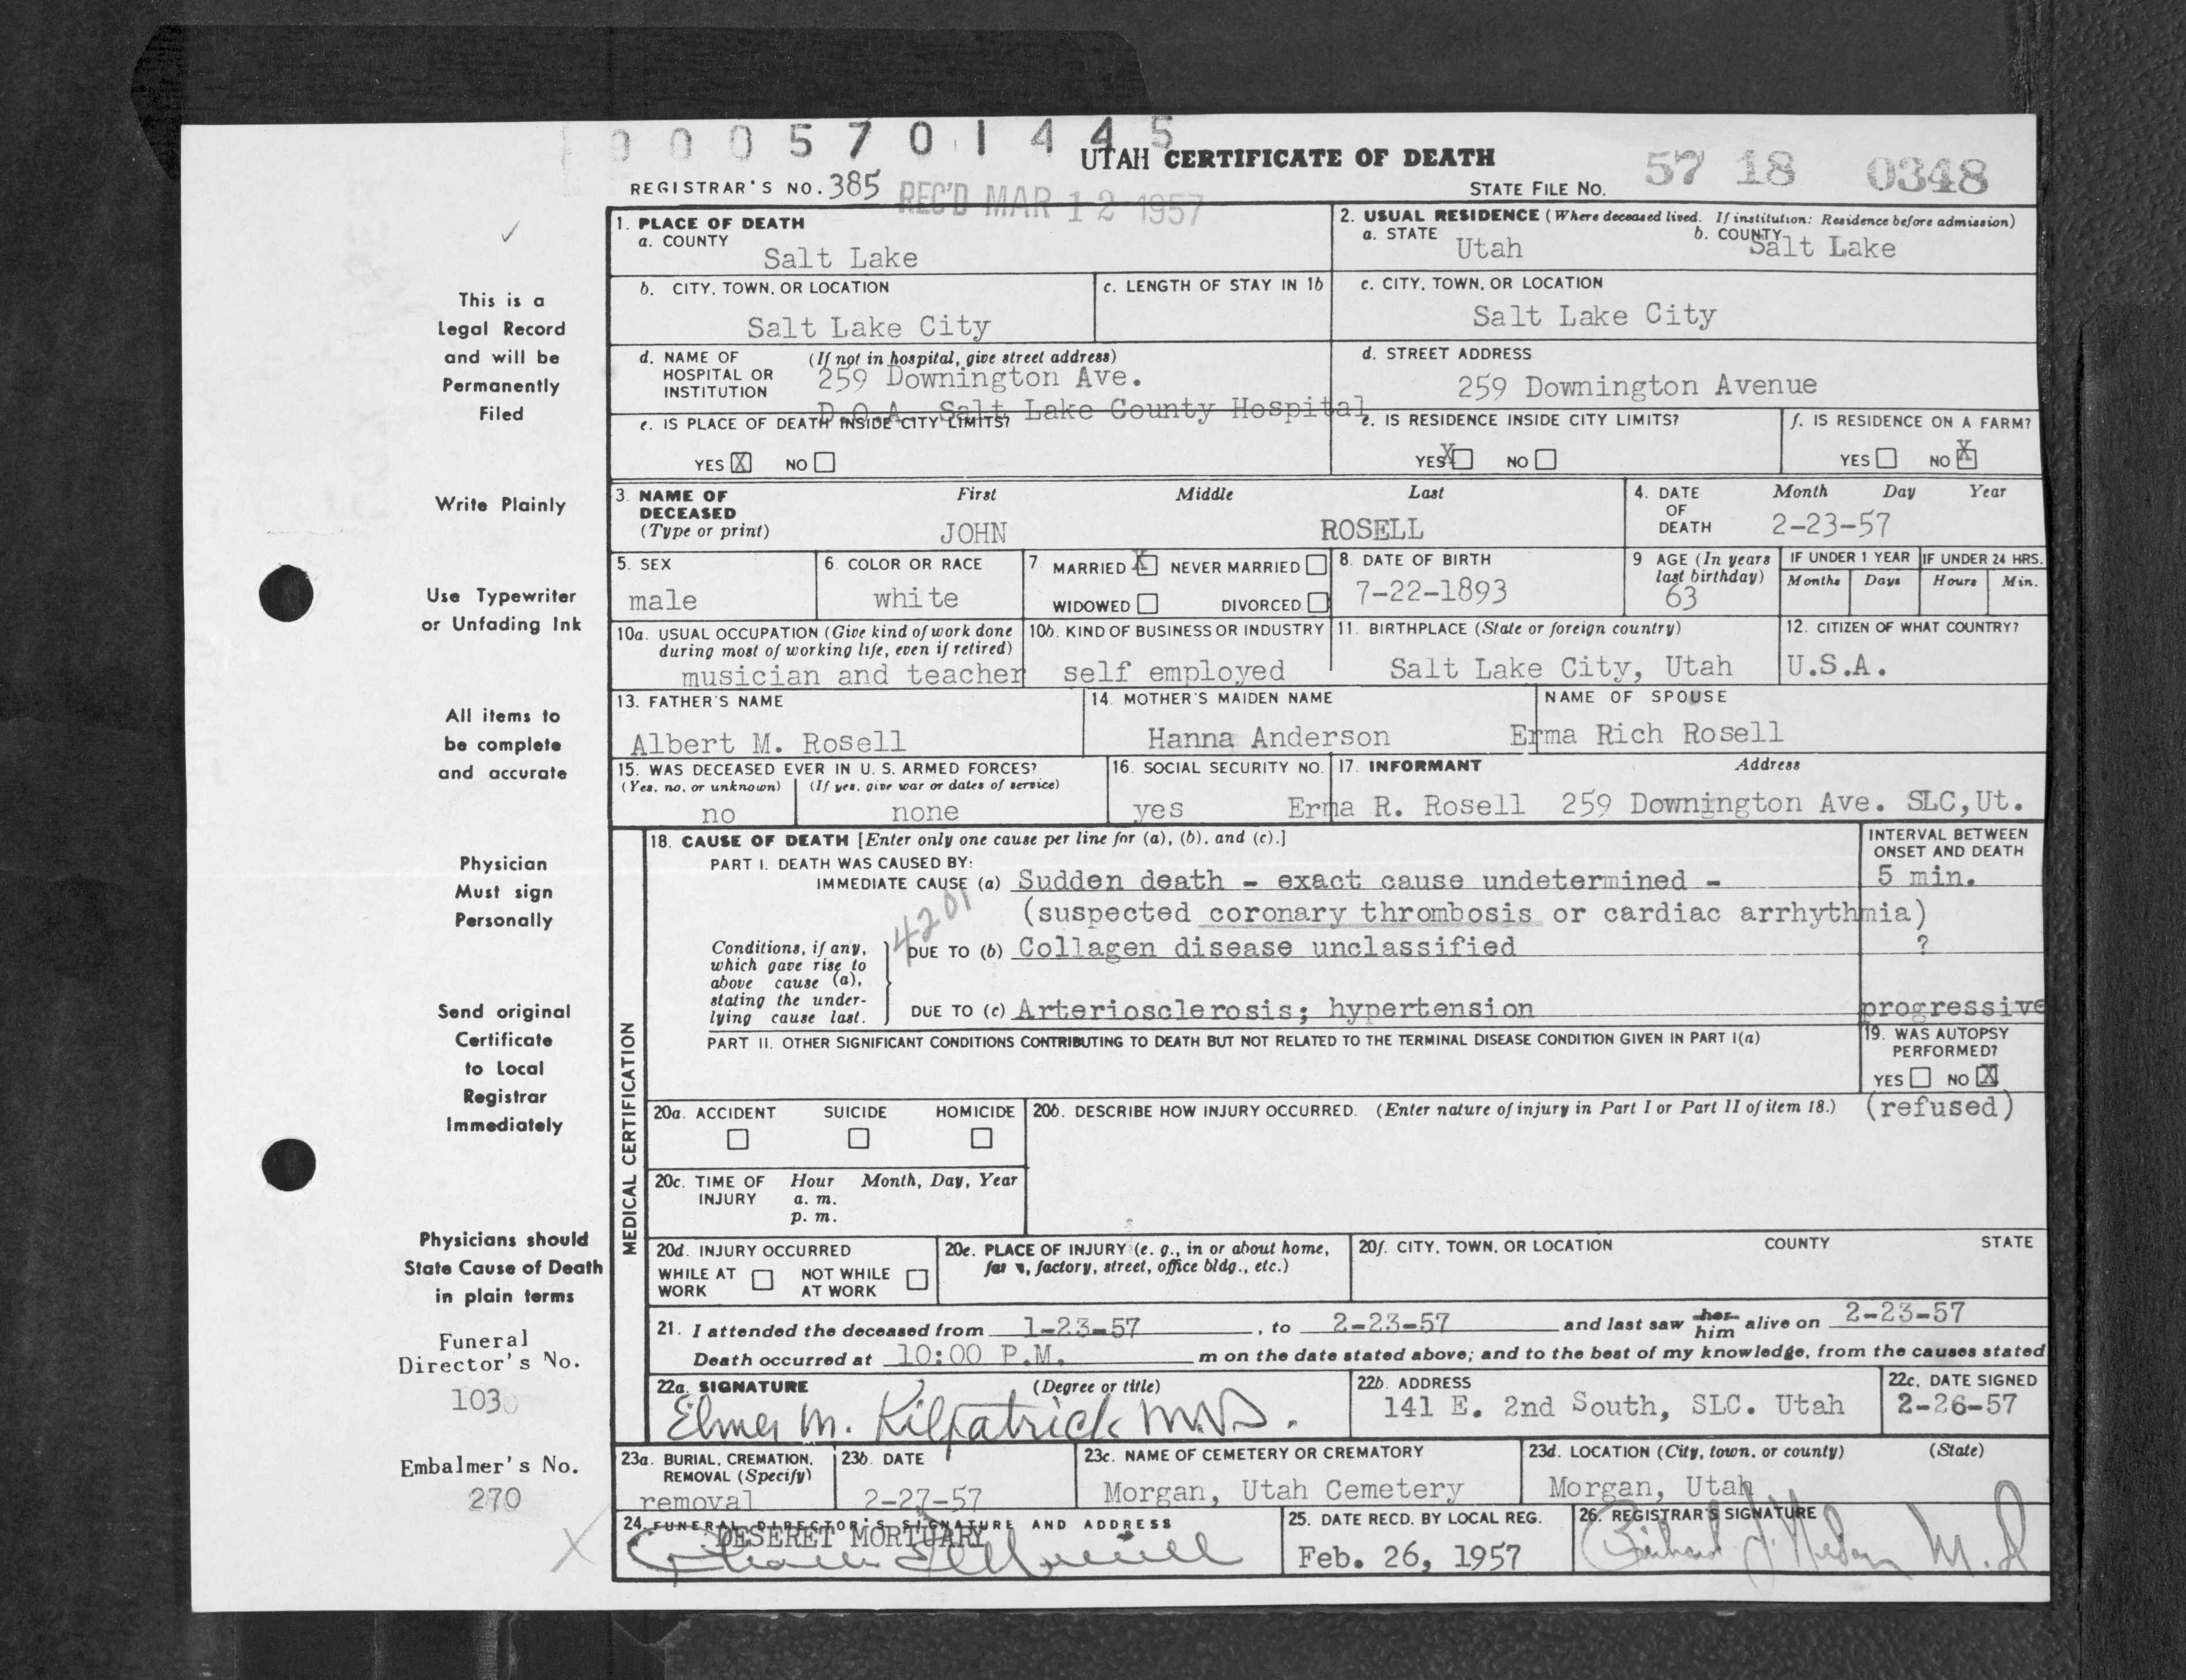 0005701445
UTAH CERTIFICATE OF DEATH
REGISTRAR'S NO. 385 REC'D MAR 12 1957 STATE FILE NO. 57 18 0348
1. PLACE OF DEATH
a. COUNTY
Salt Lake
2. USUAL RESIDENCE (Where deceased lived. If institution: Residence before admission)
a. STATE b. COUNTY
Utah Salt Lake
b. CITY, TOWN, OR LOCATION
Salt Lake City
c. LENGTH OF STAY IN 1b
c. CITY, TOWN, OR LOCATION
Salt Lake City
d. NAME OF HOSPITAL OR INSTITUTION (If not in hospital, give street address)
259 Downington Ave.
D.O.A. Salt Lake County Hospital
d. STREET ADDRESS
259 Downington Avenue
e. IS PLACE OF DEATH INSIDE CITY LIMITS?
YES X NO
e. IS RESIDENCE INSIDE CITY LIMITS?
YES X NO
f. IS RESIDENCE ON A FARM?
YES NO X
3. NAME OF DECEASED (Type or print)
First Middle Last
JOHN ROSELL
4. DATE OF DEATH
Month Day Year
2-23-57
5. SEX
male
6. COLOR OR RACE
white
7. MARRIED X NEVER MARRIED
WIDOWED DIVORCED
8. DATE OF BIRTH
7-22-1893
9 AGE (In years last birthday)
63
IF UNDER 1 YEAR
Months Days
IF UNDER 24 HRS.
Hours Min.
10a. USUAL OCCUPATION (Give kind of work done during most of working life, even if retired)
musician and teacher
10b. KIND OF BUSINESS OR INDUSTRY
self employed
11. BIRTHPLACE (State or foreign country)
Salt Lake City, Utah
12. CITIZEN OF WHAT COUNTRY?
U.S.A.
13. FATHER'S NAME
Albert M. Rosell
14. MOTHER'S MAIDEN NAME
Hanna Anderson
NAME OF SPOUSE
Erma Rich Rosell
15. WAS DECEASED EVER IN U. S. ARMED FORCES?
(Yes, no, or unknown) (If yes, give war or dates of service)
no none
16. SOCIAL SECURITY NO.
yes
17. INFORMANT Address
Erma R. Rosell 259 Downington Ave. SLC,Ut.
MEDICAL CERTIFICATION
18. CAUSE OF DEATH [Enter only one cause per line for (a), (b), and (c).]
INTERVAL BETWEEN ONSET AND DEATH
PART I. DEATH WAS CAUSED BY:
IMMEDIATE CAUSE (a) Sudden death - exact cause undetermined - 5 min.
(suspected coronary thrombosis or cardiac arrhythmia)
4201
Conditions, if any, which gave rise to above cause (a), stating the underlying cause last.
DUE TO (b) Collagen disease unclassified ?
DUE TO (c) Arteriosclerosis; hypertension progressive
PART II. OTHER SIGNIFICANT CONDITIONS CONTRIBUTING TO DEATH BUT NOT RELATED TO THE TERMINAL DISEASE CONDITION GIVEN IN PART I(a)
19. WAS AUTOPSY PERFORMED?
YES NO X
(refused)
20a. ACCIDENT SUICIDE HOMICIDE
20b. DESCRIBE HOW INJURY OCCURRED. (Enter nature of injury in Part I or Part II of item 18.)
20c. TIME OF INJURY Hour Month, Day, Year
a. m.
p. m.
20d. INJURY OCCURRED
WHILE AT WORK NOT WHILE AT WORK
20e. PLACE OF INJURY (e. g., in or about home, farm, factory, street, office bldg., etc.)
20f. CITY, TOWN, OR LOCATION COUNTY STATE
21. I attended the deceased from 1-23-57, to 2-23-57 and last saw her him alive on 2-23-57
Death occurred at 10:00 P.M. m on the date stated above; and to the best of my knowledge, from the causes stated
22a. SIGNATURE (Degree or title)
Elmer M. Kilpatrick M.D.
22b. ADDRESS
141 E. 2nd South, SLC. Utah
22c. DATE SIGNED
2-26-57
23a. BURIAL, CREMATION, REMOVAL (Specify)
removal
23b. DATE
2-27-57
23c. NAME OF CEMETERY OR CREMATORY
Morgan, Utah Cemetery
23d. LOCATION (City, town, or county) (State)
Morgan, Utah
24. FUNERAL DIRECTOR'S SIGNATURE AND ADDRESS
DESERET MORTUARY
25. DATE RECD. BY LOCAL REG.
Feb. 26, 1957
26. REGISTRAR'S SIGNATURE
M.D
This is a
Legal Record
and will be
Permanently
Filed
Write Plainly
Use Typewriter
or Unfading Ink
All items to
be complete
and accurate
Physician
Must sign
Personally
Send original
Certificate
to Local
Registrar
Immediately
Physicians should
State Cause of Death
in plain terms
Funeral
Director's No.
103
Embalmer's No.
270